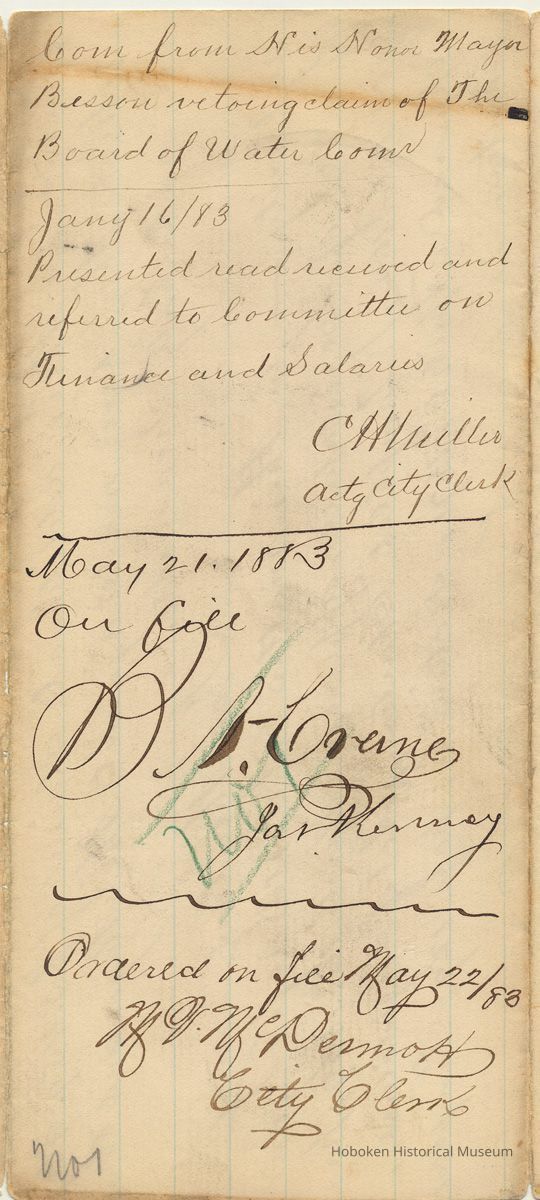 Com from His Honor Mayor
Besson vetoing claim of The
Board of Water Comr
Jany 16/83
Presented read received and
referred to Committee on
Finance and Salaries
CH Miller
Actg City Clerk
May 21. 1883
On file
Jas Kenney
Ordered on file May 22/83
McDermott
City Clerk
No 1
Hoboken Historical Museum